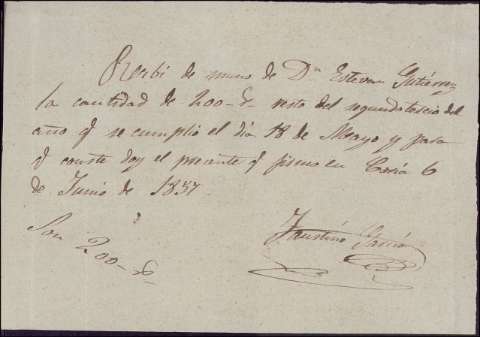 Recibí de mano de Dn Estevan Gutiérrez
la cantidad de 200-rs resto del segundo tercio del
año q se cumplio el dia 18 de Mayo y para
q conste doy el presente q firmo en Coria 6
de Junio de 1837.
Son 200-rs
Faustino García